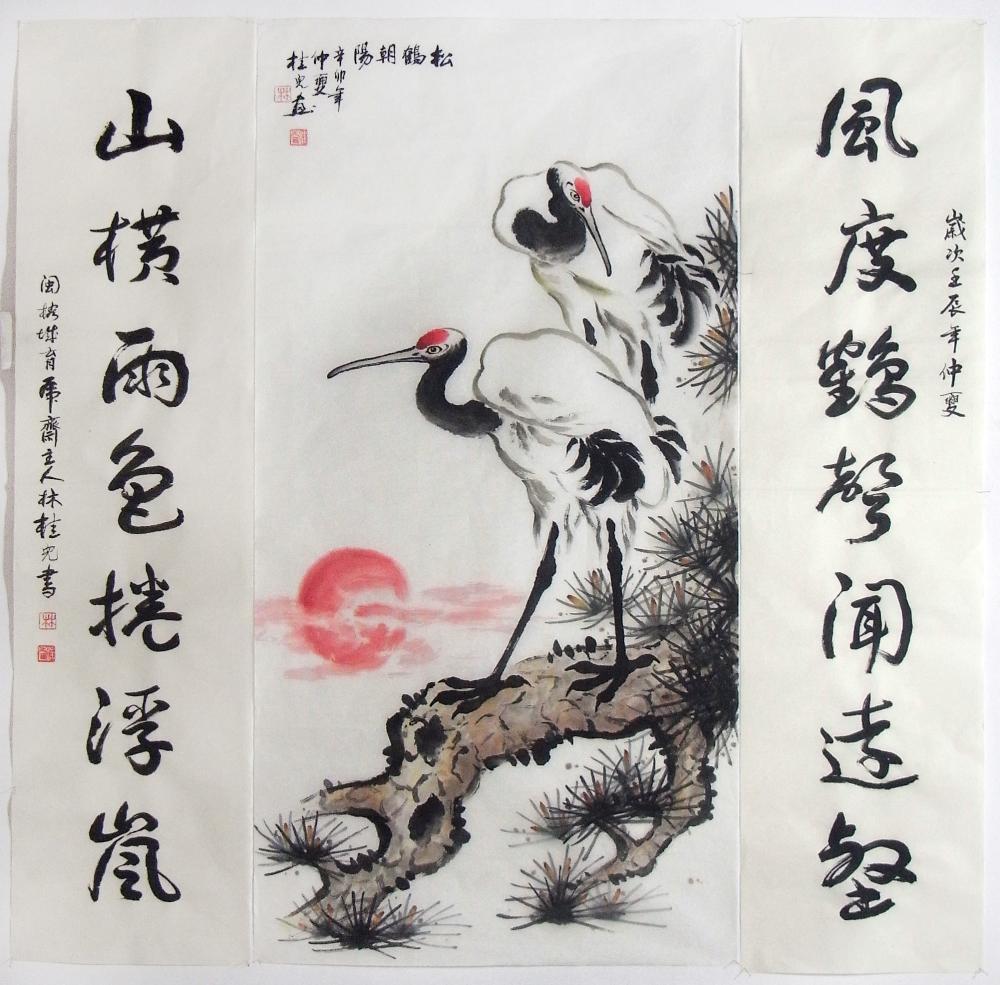 風度鶴聲聞遠壑
歲次壬辰年仲夏
松鶴朝陽
辛卯年
仲夏
桂兒畫
山橫雨色捲浮嵐
闽榕城育德齋主人林桂兒書